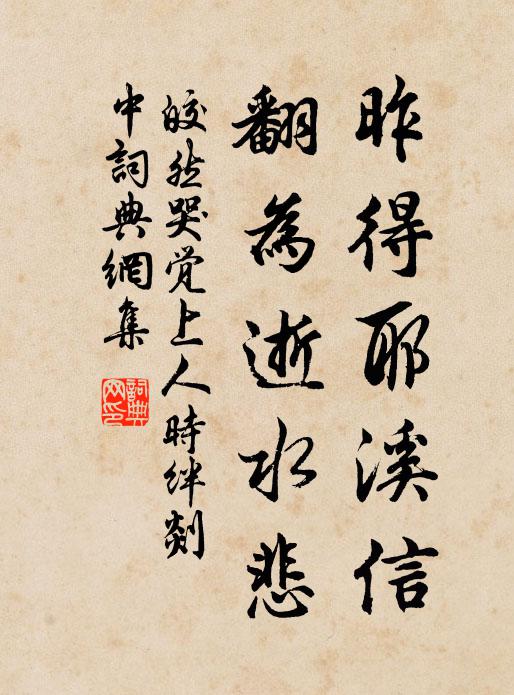 昨得耶溪信
翻為逝水悲
皎然哭觉上人時絆剡
中詞典網集
詞典网印